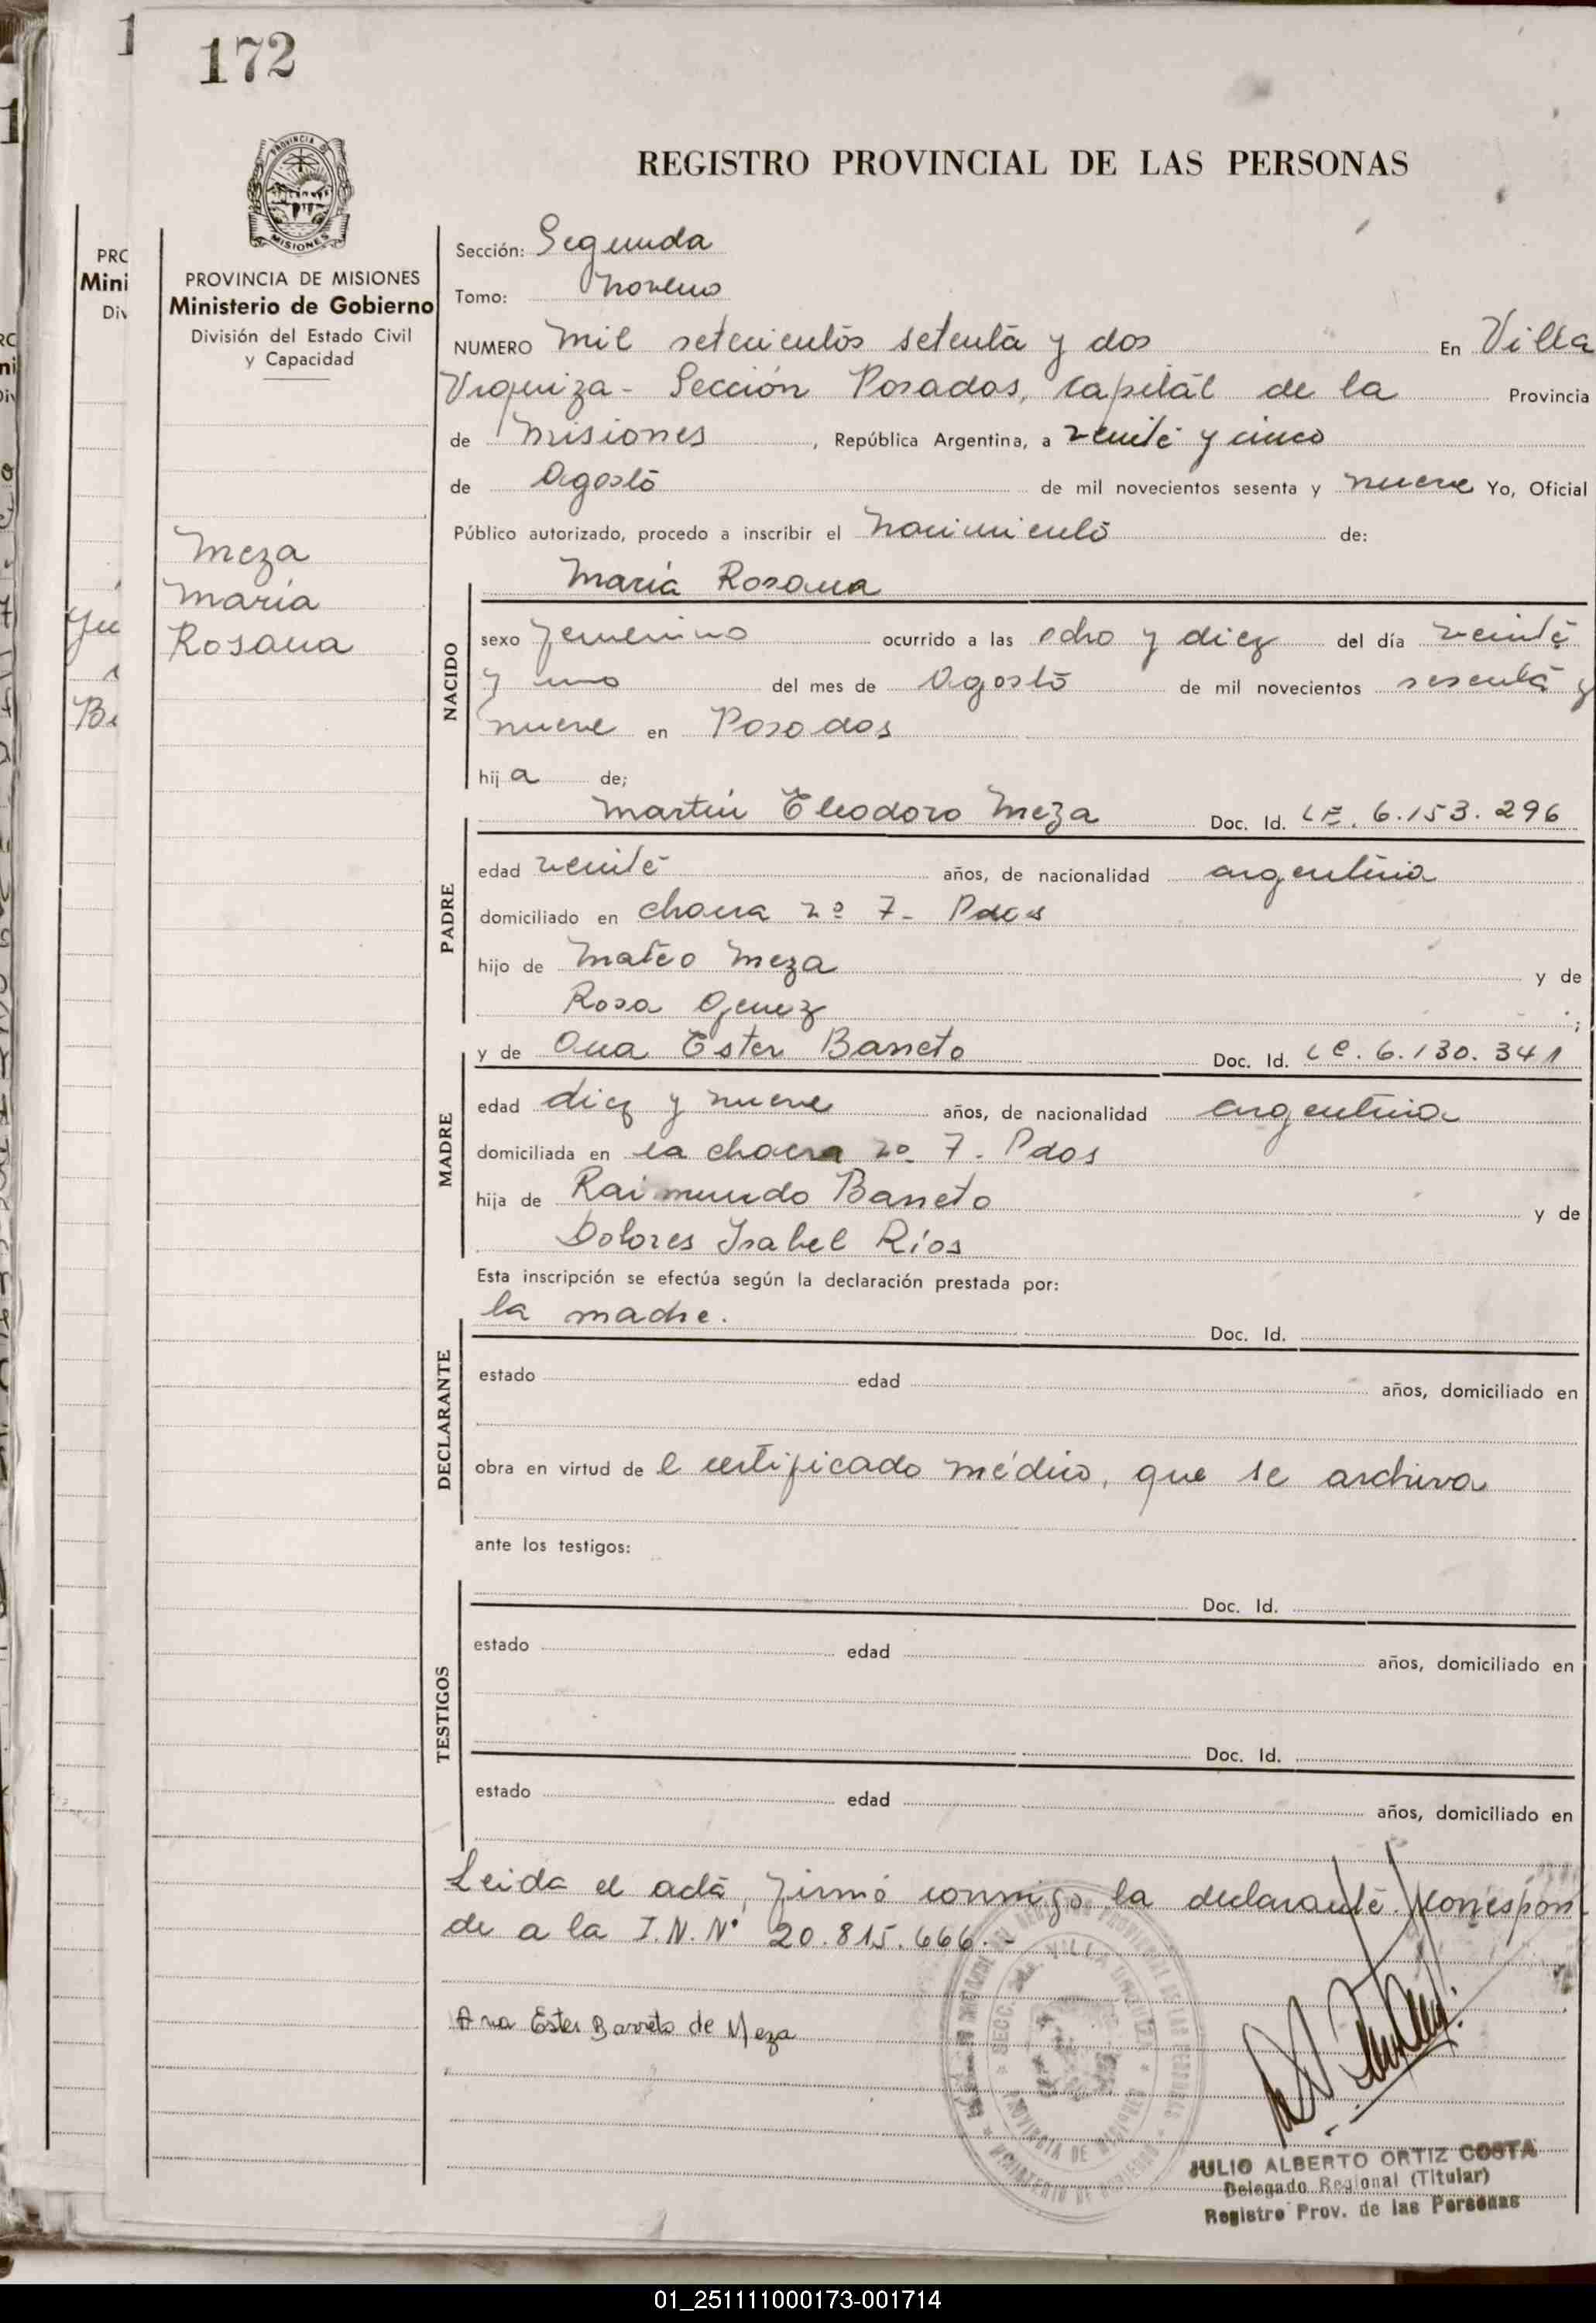 172
PROVINCIA DE
MISIONES
REGISTRO PROVINCIAL DE LAS PERSONAS
PROVINCIA DE MISIONES
Ministerio de Gobierno
División del Estado Civil
y Capacidad
Meza
María
Rosana
Sección: Segunda
Tomo: Noveno
NUMERO Mil setecientos setenta y dos En Villa
Urquiza - Sección Posadas, Capital de la Provincia
de Misiones, República Argentina, a veinte y cinco
de Agosto de mil novecientos sesenta y nueve Yo, Oficial
Público autorizado, procedo a inscribir el Nacimiento de:
María Rosana
NACIDO
sexo femenino ocurrido a las ocho y diez del día veinte
y uno del mes de Agosto de mil novecientos sesenta y
nueve en Posadas
hija de;
PADRE
Martin Eleodoro Meza Doc. Id. LE. 6.153.296
edad veinte años, de nacionalidad argentina
domiciliado en chacra nº 7 - Pdas
hijo de Mateo Meza y de
Rosa ;
MADRE
y de Ana Ester Barreto Doc. Id. LC. 6.130.341
edad diez y nueve años, de nacionalidad argentina
domiciliada en la chacra nº 7. Pdas
hija de Raimundo Barreto y de
Dolores Isabel Ríos
Esta inscripción se efectúa según la declaración prestada por:
DECLARANTE
la madre. Doc. Id.
estado edad años, domiciliado en
obra en virtud del certificado médico, que se archiva
ante los testigos:
TESTIGOS
Doc. Id.
estado edad años, domiciliado en
Doc. Id.
estado edad años, domiciliado en
Leida el acta, firmó conmigo la declarante. Correspon-
de a la I.N. Nº 20.815.666.-
Ana Ester Barreto de Meza
SECC. 2da. VILLA URQUIZA
PROVINCIA DE MISIONES
MINISTERIO DE GOBIERNO
JULIO ALBERTO ORTIZ COSTA
Delegado Regional (Titular)
Registro Prov. de las Personas
PRC
Mini
Div
01_251111000173-001714